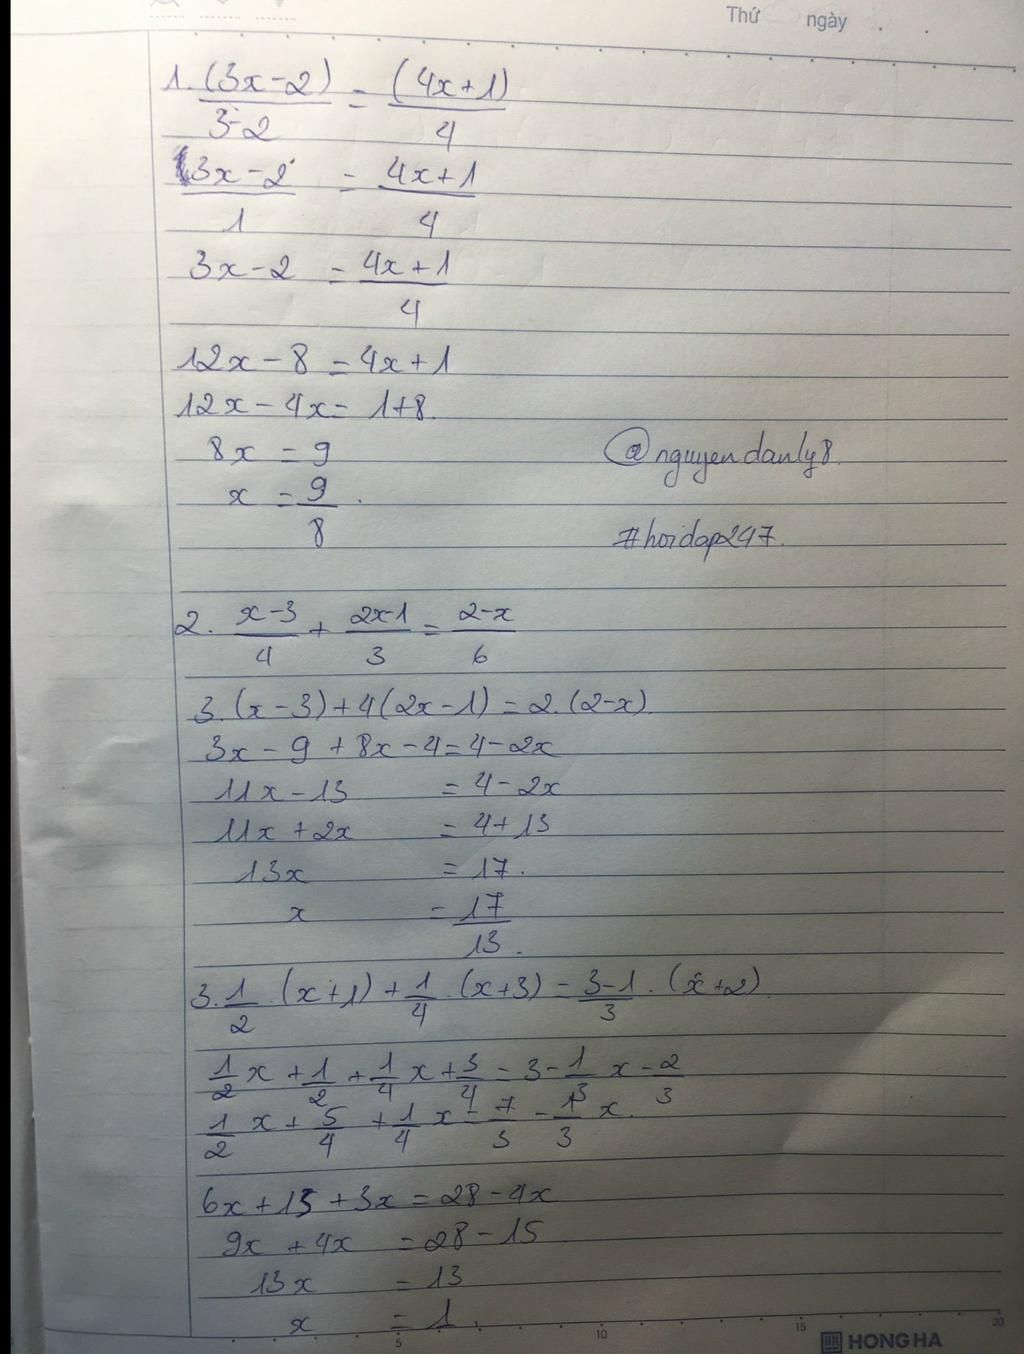 Thứ ngày
1. (3x-2)/(3-2) = (4x+1)/4
(3x-2)/1 = (4x+1)/4
3x-2 = (4x+1)/4
12x-8 = 4x+1
12x-4x = 1+8.
8x = 9
@nguyendanly8
x = 9/8.
#hoidap247.
2. (x-3)/4 + (2x-1)/3 = (2-x)/6
3.(x-3)+4(2x-1) = 2.(2-x)
3x-9+8x-4 = 4-2x
11x-13 = 4-2x
11x+2x = 4+13
13x = 17.
x = 17/13.
3. 1/2.(x+1) + 1/4.(x+3) = (3-1)/3.(x+2)
1/2x + 1/2 + 1/4x + 3/4 = 3 - 1/3x - 2/3
1/2x + 5/4 + 1/4x = 7/3 - 1/3x.
6x+15+3x = 28-4x
9x+4x = 28-15
13x = 13
x = 1.
5 10 15 20
HONG HA